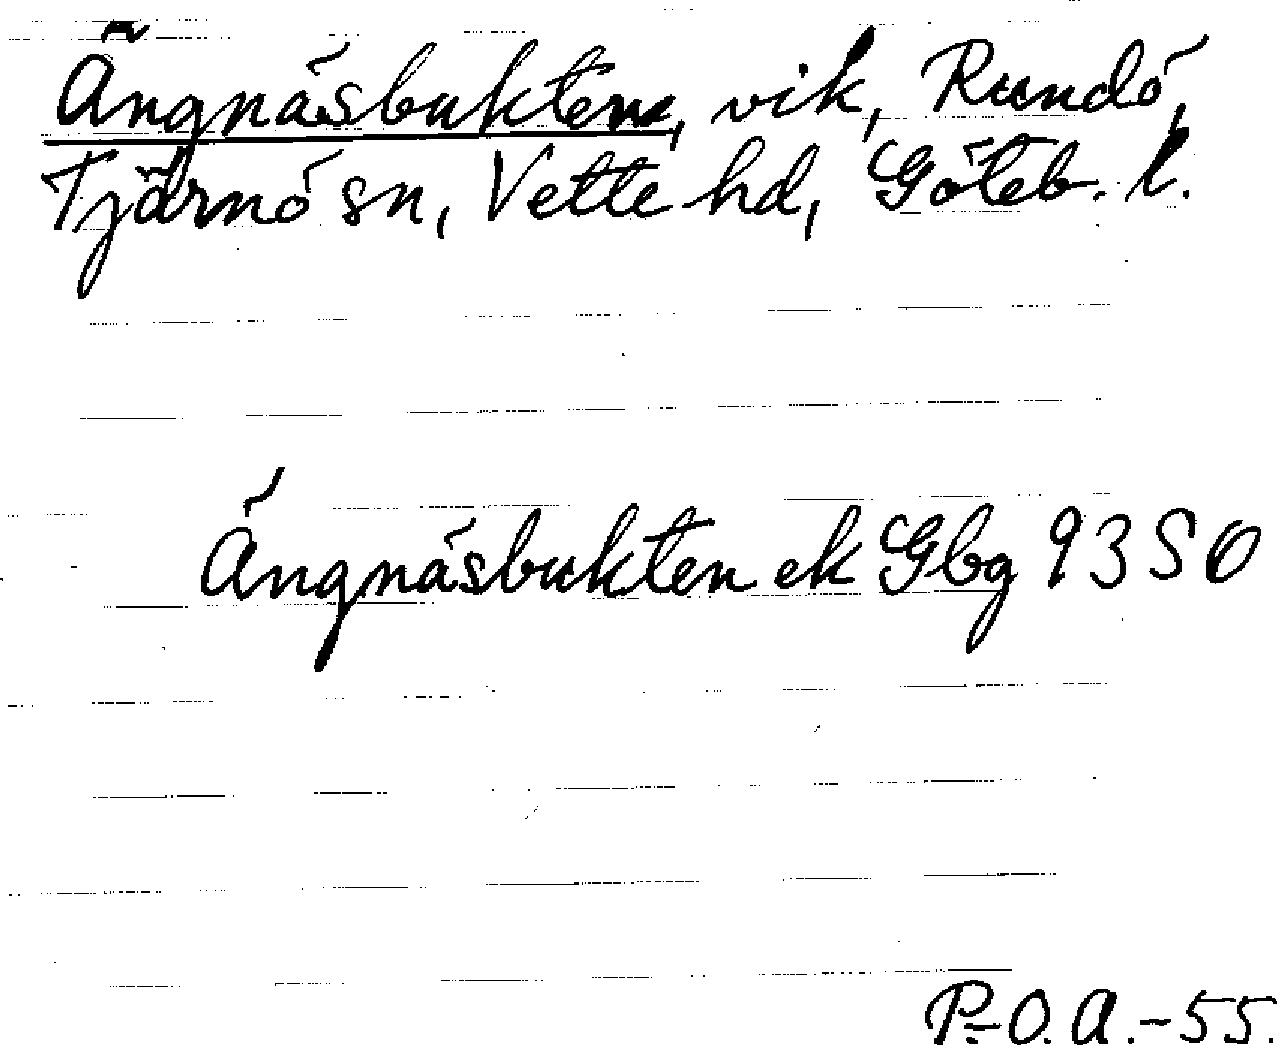 Ängnäsbukten, vik, Rundö,
Tjärnö sn, Vette hd, Göteb. l.
Ängnäsbukten ek Gbg 9350
P-O. A.-55.